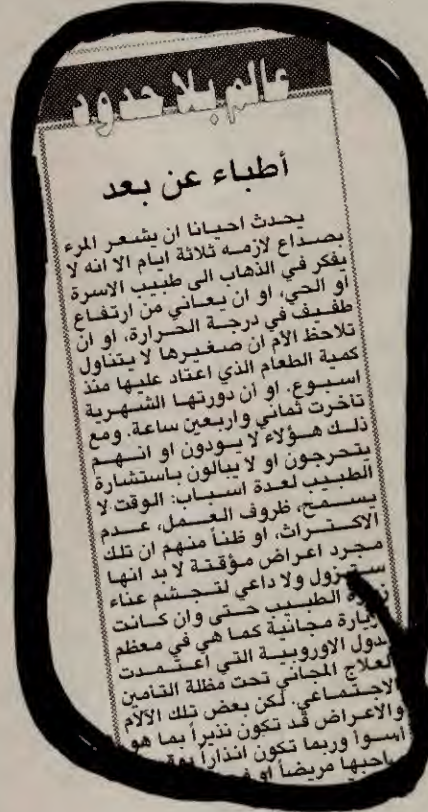 عالم بلا حدود
أطباء عن بعد
يحدث احيانا ان يشعر المرء
بصداع لازمه ثلاثة ايام الا انه لا
يفكر في الذهاب الى طبيب الاسرة
او الحي، او ان يعاني من ارتفاع
طفيف في درجة الحرارة، او ان
تلاحظ الأم ان صغيرها لا يتناول
كمية الطعام الذي اعتاد عليها منذ
اسبوع. او ان دورتها الشهرية
تأخرت ثماني واربعين ساعة. ومع
ذلك هؤلاء لا يودون او انهم
يتحرجون او لا يبالون باستشارة
الطبيب لعدة اسباب: الوقت لا
يسمح، ظروف العمل، عدم
الاكتراث، او ظناً منهم ان تلك
مجرد اعراض مؤقتة لا بد انها
ستزول ولا داعي لتجشم عناء
الطبيب حتى وان كانت
زيارة مجانية كما هي في معظم
الدول الاوروبية التي اعتمدت
العلاج المجاني تحت مظلة التامين
الاجتماعي. لكن بعض تلك الآلام
والاعراض قد تكون نذيراً بما هو
اسوأ وربما تكون انذاراً
مريضاً او